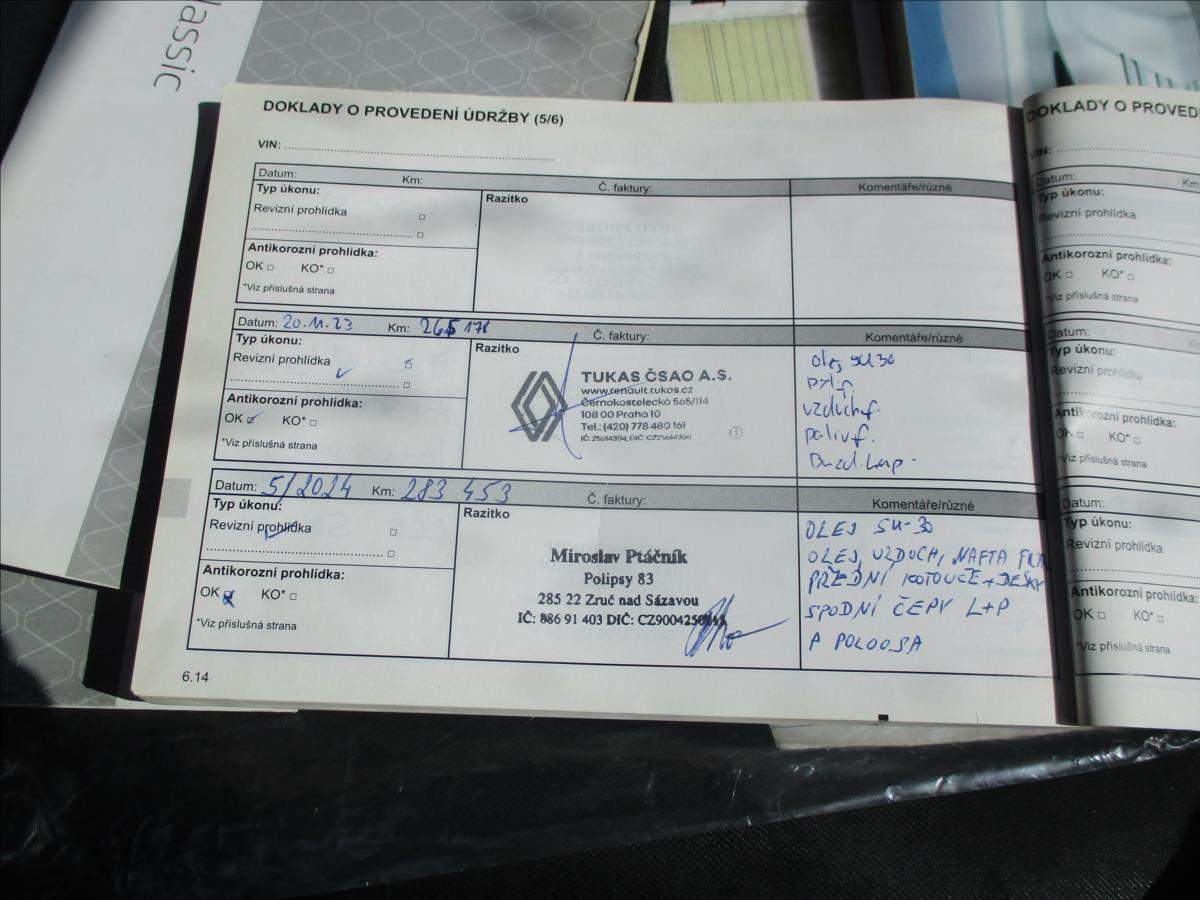 lassic
DOKLADY O PROVEDENÍ ÚDRŽBY (5/6)
VIN:
Datum: Km: Č. faktury: Komentáře/různé
Typ úkonu:
Razítko
Revizní prohlídka
Antikorozní prohlídka:
OK KO*
*Viz příslušná strana
Datum: 20.11.23 Km: 265 178 Č. faktury: Komentáře/různé
Typ úkonu:
Razítko
Revizní prohlídka
Antikorozní prohlídka:
OK KO*
*Viz příslušná strana
TUKAS ČSAO A.S.
www.renault.tukas.cz
Černokostelecká 565/114
108 00 Praho 10
Tel.: (420) 778 480 161
olej 5W30
vzduch f.
paliv f.
Datum: 5/2024 Km: 283 453 Č. faktury: Komentáře/různé
Typ úkonu:
Razítko
Revizní prohlídka
Antikorozní prohlídka:
OK KO*
*Viz příslušná strana
Miroslav Ptáčník
Polipsy 83
285 22 Zruč nad Sázavou
IČ: 886 91 403 DIČ:
OLEJ 5W-30
OLEJ, VZDUCH, NAFTA
PŘEDNÍ KOTOUČE + DESKY
SPODNÍ ČEPY L+P
P POLOOSA
6.14
DOKLADY O PROVED
VIN:
Datum: Km
Typ úkonu:
Revizní prohlídka
Antikorozní prohlídka:
OK KO*
*Viz příslušná strana
Datum:
Typ úkonu:
Revizní prohlídka
Antikorozní prohlídka:
OK KO*
*Viz příslušná strana
Datum:
Typ úkonu:
Revizní prohlídka
Antikorozní prohlídka:
OK KO*
*Viz příslušná strana